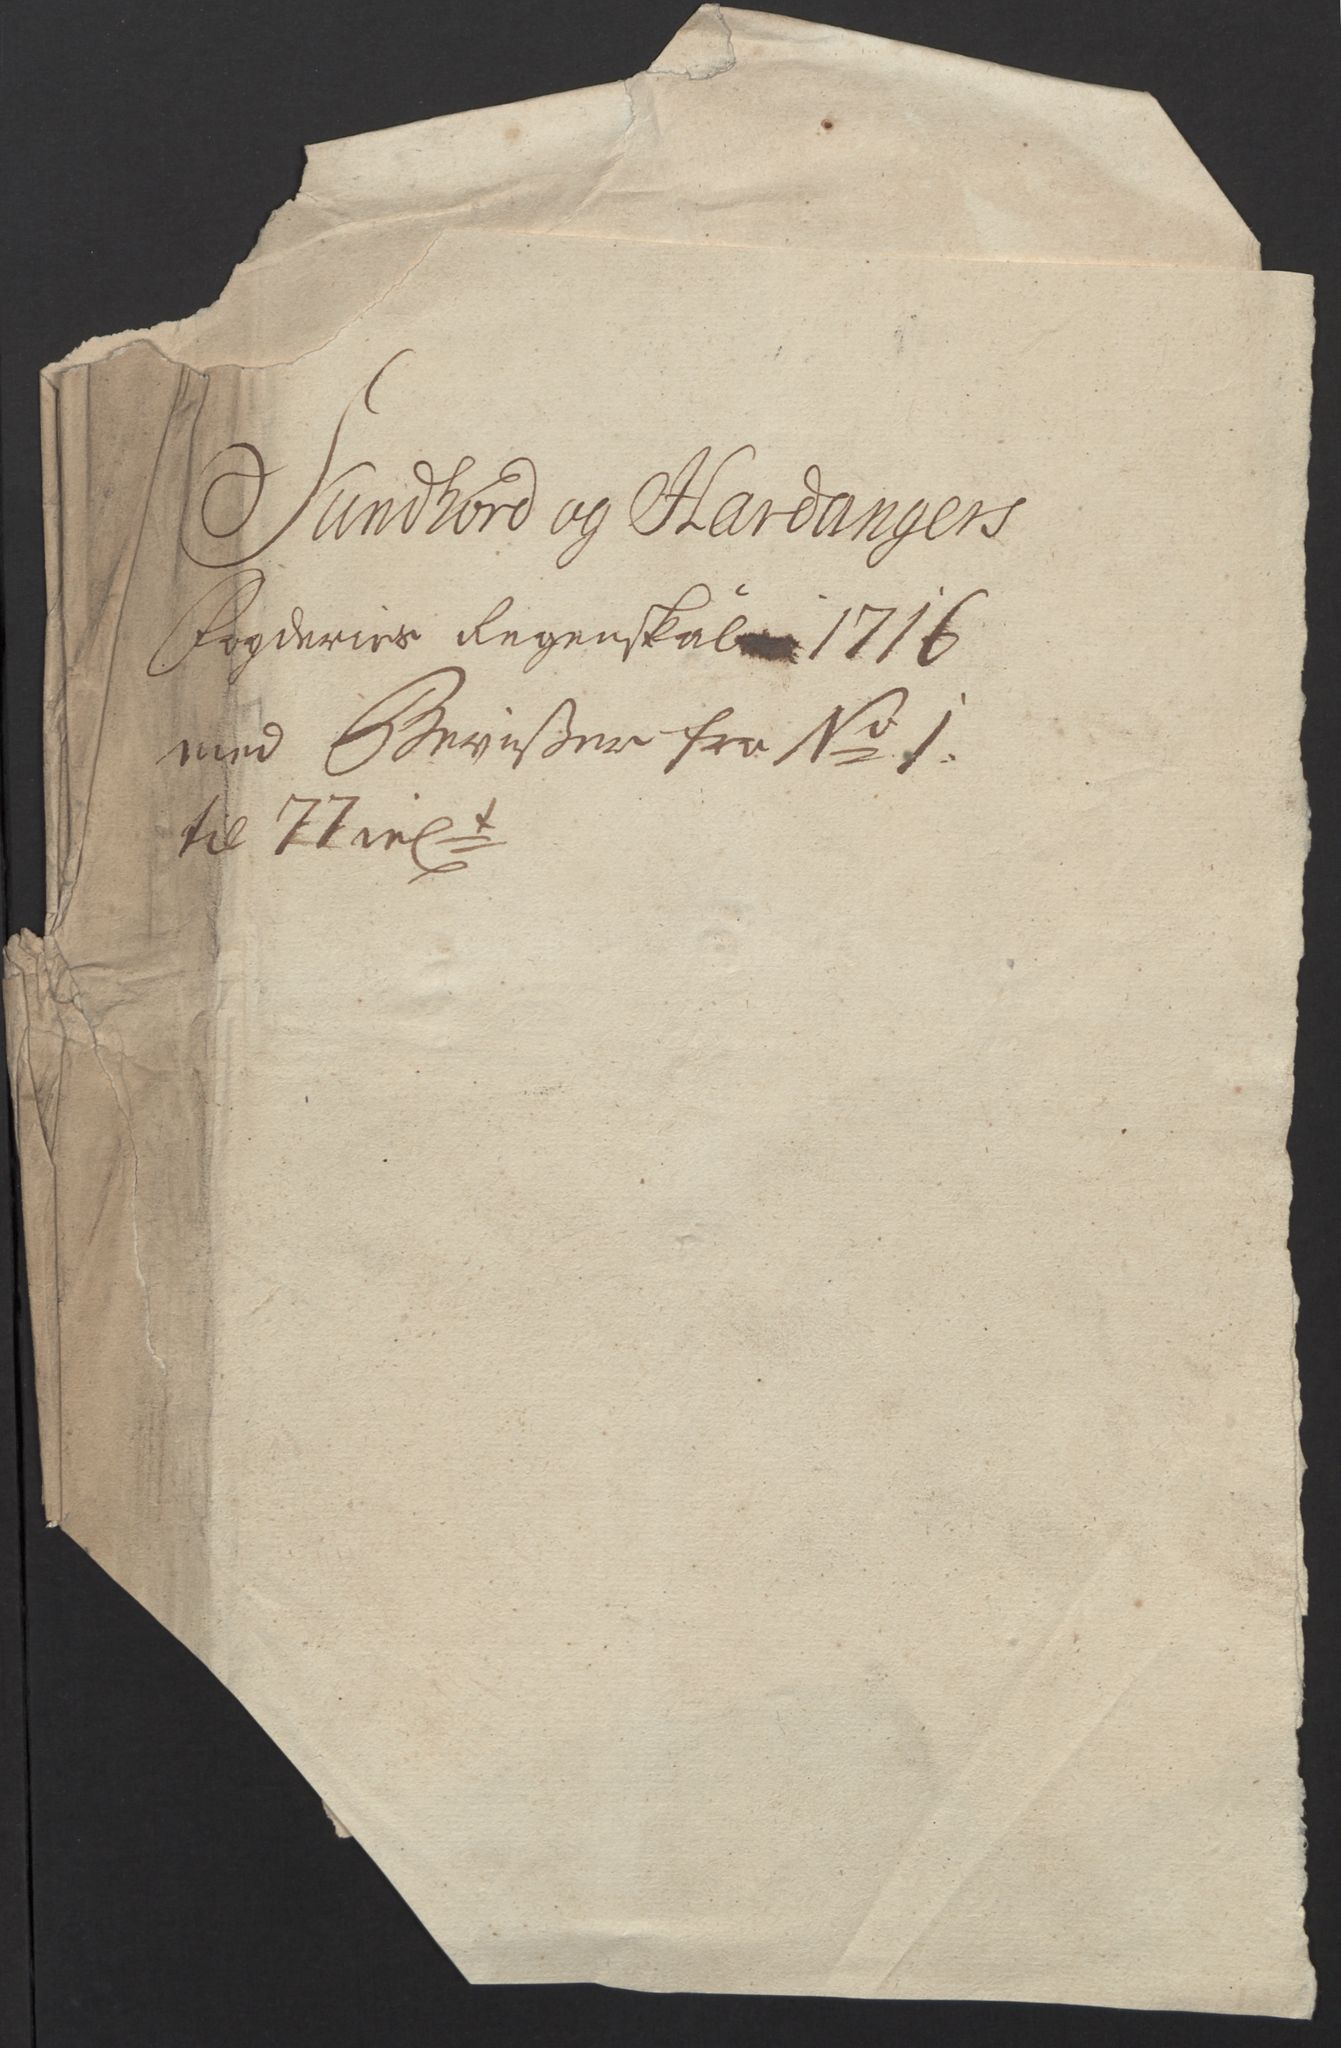 Sundhord og Hardangers
Fogderies Regenskab 1716
med Bevißer fra No 1.
til 77 incl.